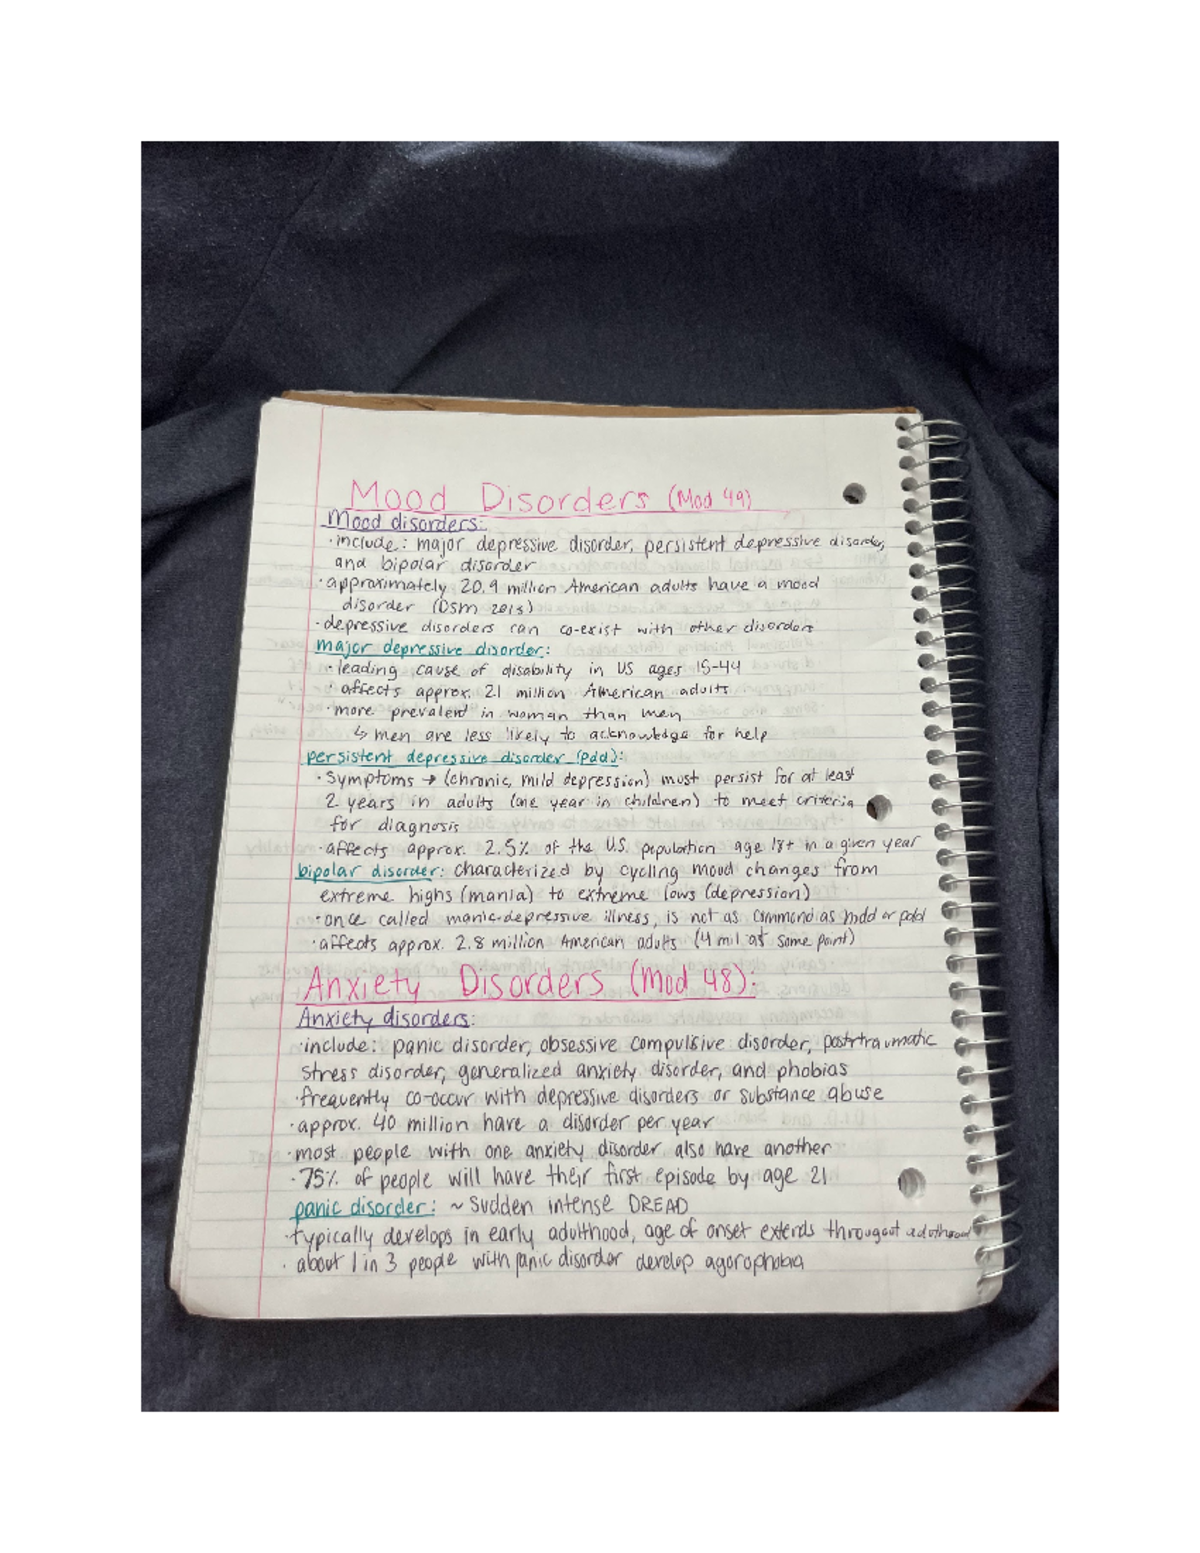 Mood Disorders (Mod 49)
Mood disorders:
· include: major depressive disorder, persistent depressive disorder,
and bipolar disorder
· approximately 20.9 million American adults have a mood
disorder (DSM 2013)
· depressive disorders can co-exist with other disorders
major depressive disorder:
· leading cause of disability in US ages 15-44
· affects approx. 21 million American adults
· more prevalent in woman than men
↳ men are less likely to acknowledge for help
persistent depressive disorder (pdd):
· Symptoms → (chronic, mild depression) must persist for at least
2 years in adults (one year in children) to meet criteria
for diagnosis
· affects approx. 2.5% of the U.S. population age 18+ in a given year
bipolar disorder: characterized by cycling mood changes from
extreme highs (mania) to extreme lows (depression)
· once called manic-depressive illness, is not as commond as mdd or pdd
· affects approx. 2.8 million American adults (4 mil at some point)
Anxiety Disorders (Mod 48):
Anxiety disorders:
· include: panic disorder, obsessive compulsive disorder, postrtraumatic
stress disorder, generalized anxiety disorder, and phobias
· frequently co-occur with depressive disorders or substance abuse
· approx. 40 million have a disorder per year
· most people with one anxiety disorder also have another
· 75% of people will have their first episode by age 21
panic disorder: ~ Sudden intense DREAD
· typically develops in early adulthood, age of onset extends througout adulthood
· about 1 in 3 people with panic disorder develop agorophobia